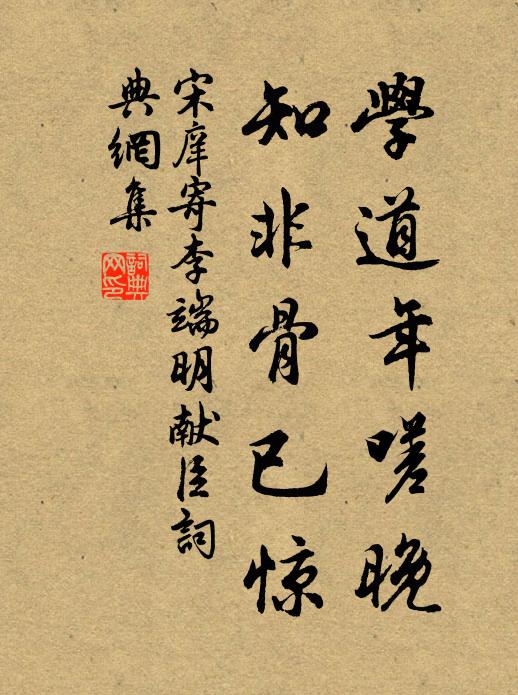 學道年嗟晚
知非骨已惊
宋庠寄李端明献臣詞
典網集
詞典網印